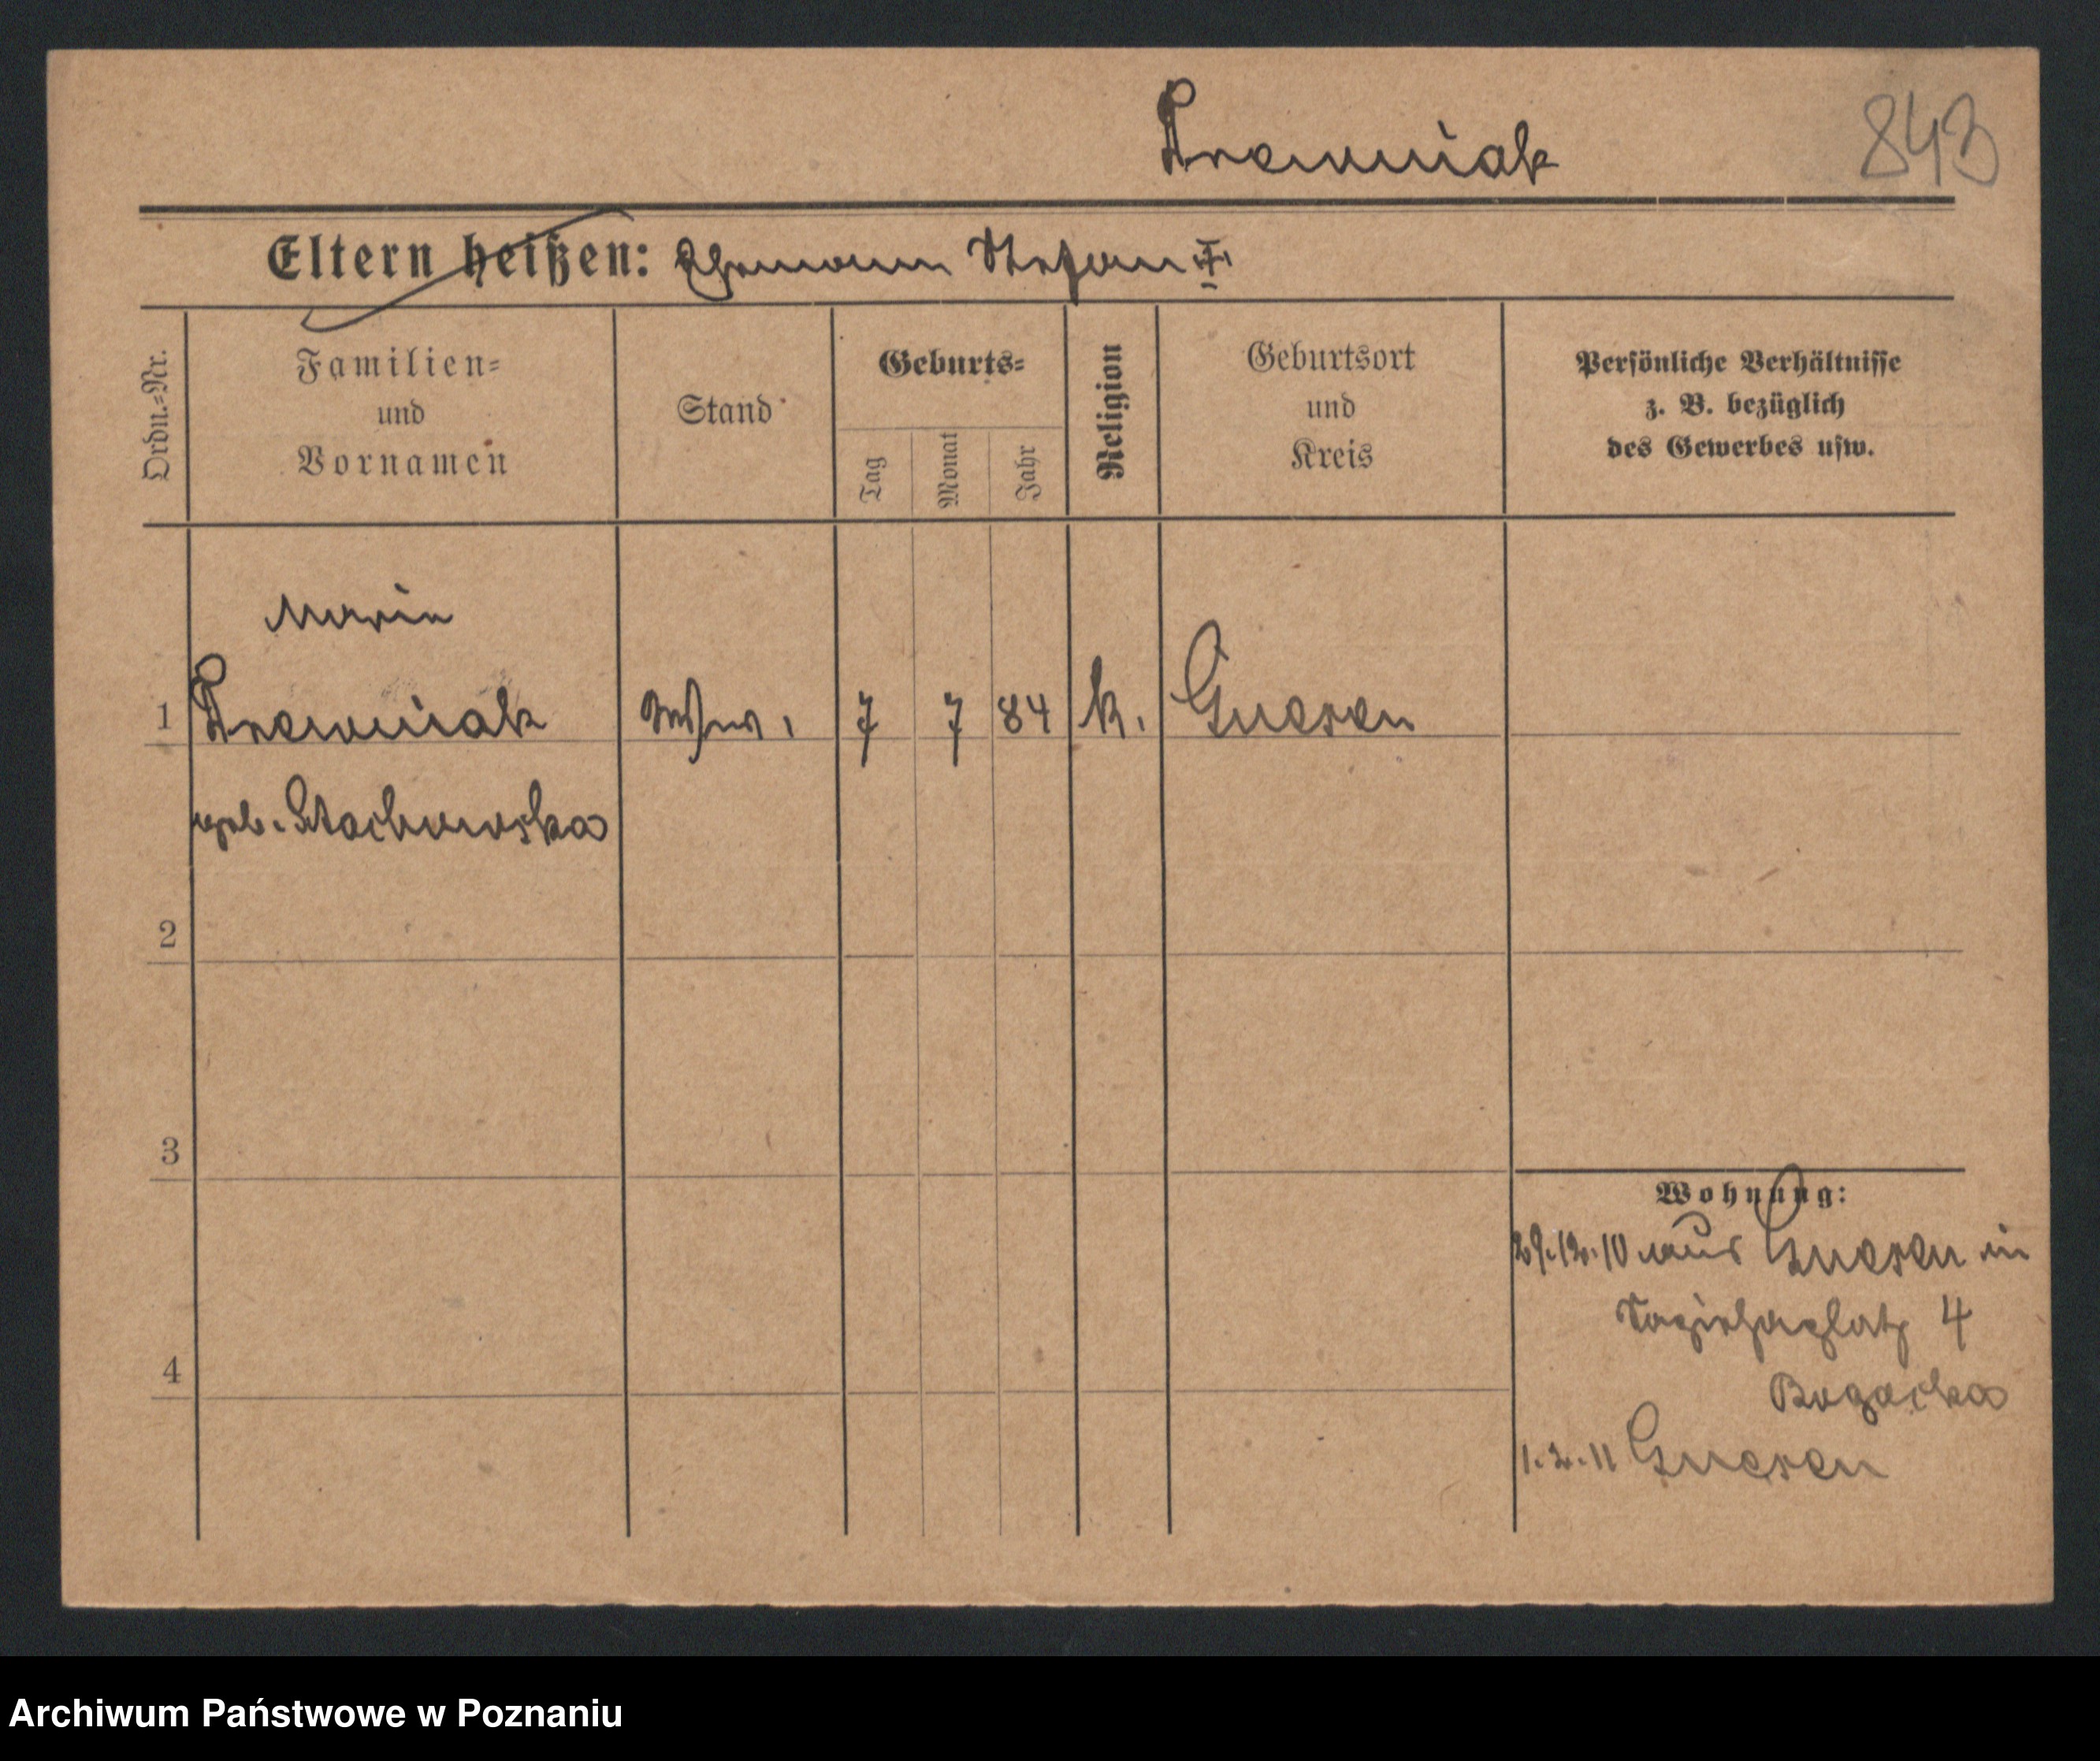 Drewniak
843
Eltern heißen: Ehemann Stefan †
Ordn.=Nr.
Familien=
und
Vornamen
Stand
Geburts=
Tag
Monat
Jahr
Religion
Geburtsort
und
Kreis
Persönliche Verhältnisse
z. B. bezüglich
des Gewerbes usw.
Maria
1 Drewniak Wtw. 7 7 84 k. Gnesen
geb. Stachowska
2
3
4
Wohnung:
29.12.10 aus Gnesen in
4
Bogacka
1.2.11 Gnesen
Archiwum Państwowe w Poznaniu